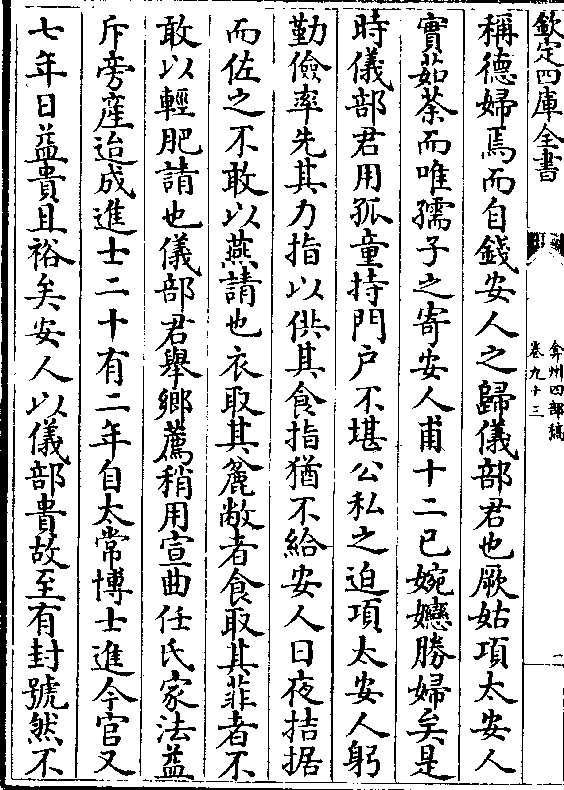 欽定四庫全書
弇州四部稿
卷九十三
二
稱德婦焉而自錢安人之歸儀部君也厥姑項太安人
實茹荼而唯孺子之寄安人甫十二已婉孌勝婦矣是
時儀部君用孤童持門户不堪公私之迫項太安人躬
勤儉率先其力指以供其食指猶不給安人日夜拮据
而佐之不敢以燕請也衣取其麄敝者食取其菲者不
敢以輕肥請也儀部君舉鄉薦稍用宣曲任氏家法益
斥旁產迨成進士二十有二年自太常博士進今官又
七年日益貴且裕矣安人以儀部貴故至有封號然不